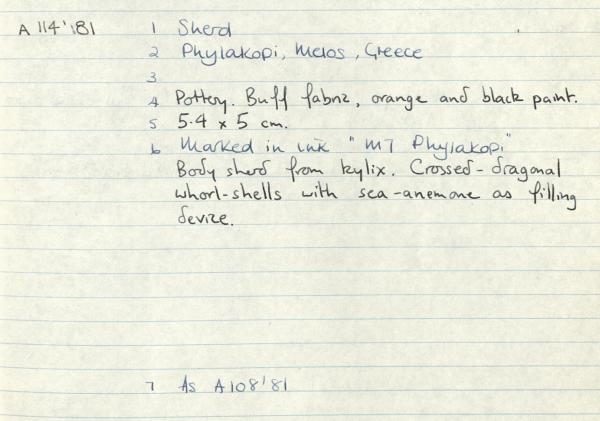 A 114'181 1 Sherd
2 Phylakopi, Melos, Greece
3
4 Pottery. Buff fabric, orange and black paint.
5 5.4 x 5 cm.
6 Marked in ink "M7 Phylakopi"
Body sherd from kylix. Crossed-diagonal
whorl-shells with sea-anemone as filling
device.
7 As A108'81